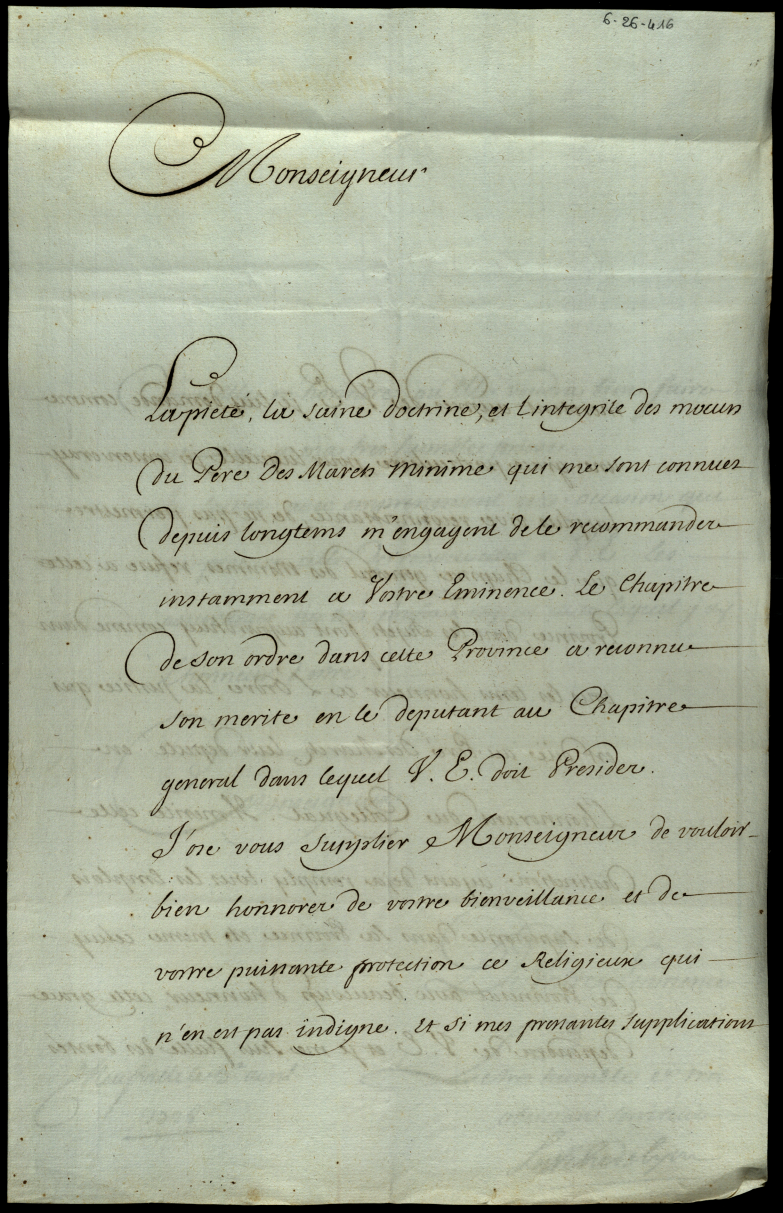 6-26-416
Monseigneur
La pieté, la saine doctrine, et l'integrite des moeurs
du Pere Des Marets minime qui me sont connues
depuis longtems m'engagent de le recommander
instamment a Vostre Eminence. Le Chapitre
de son ordre dans cette Province a reconnu
son merite en le deputant au Chapitre
general dans lequel V. E. doit Presider.
J'ose vous supplier Monseigneur de vouloir
bien honnorer de vostre bienveillance et de
vostre puissante protection ce Religieux qui
n'en est pas indigne. Et si mes presantes supplications